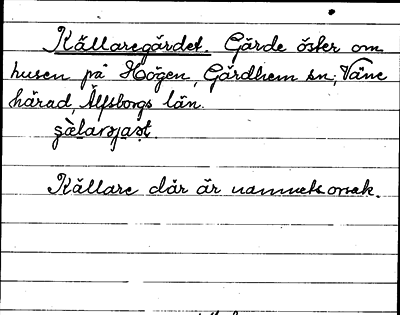 Källaregärdet. Gärde öster om
husen på Högen, Gärdhem sn, Väne
härad, Älfsborgs län.
Källare där är namnets orsak.